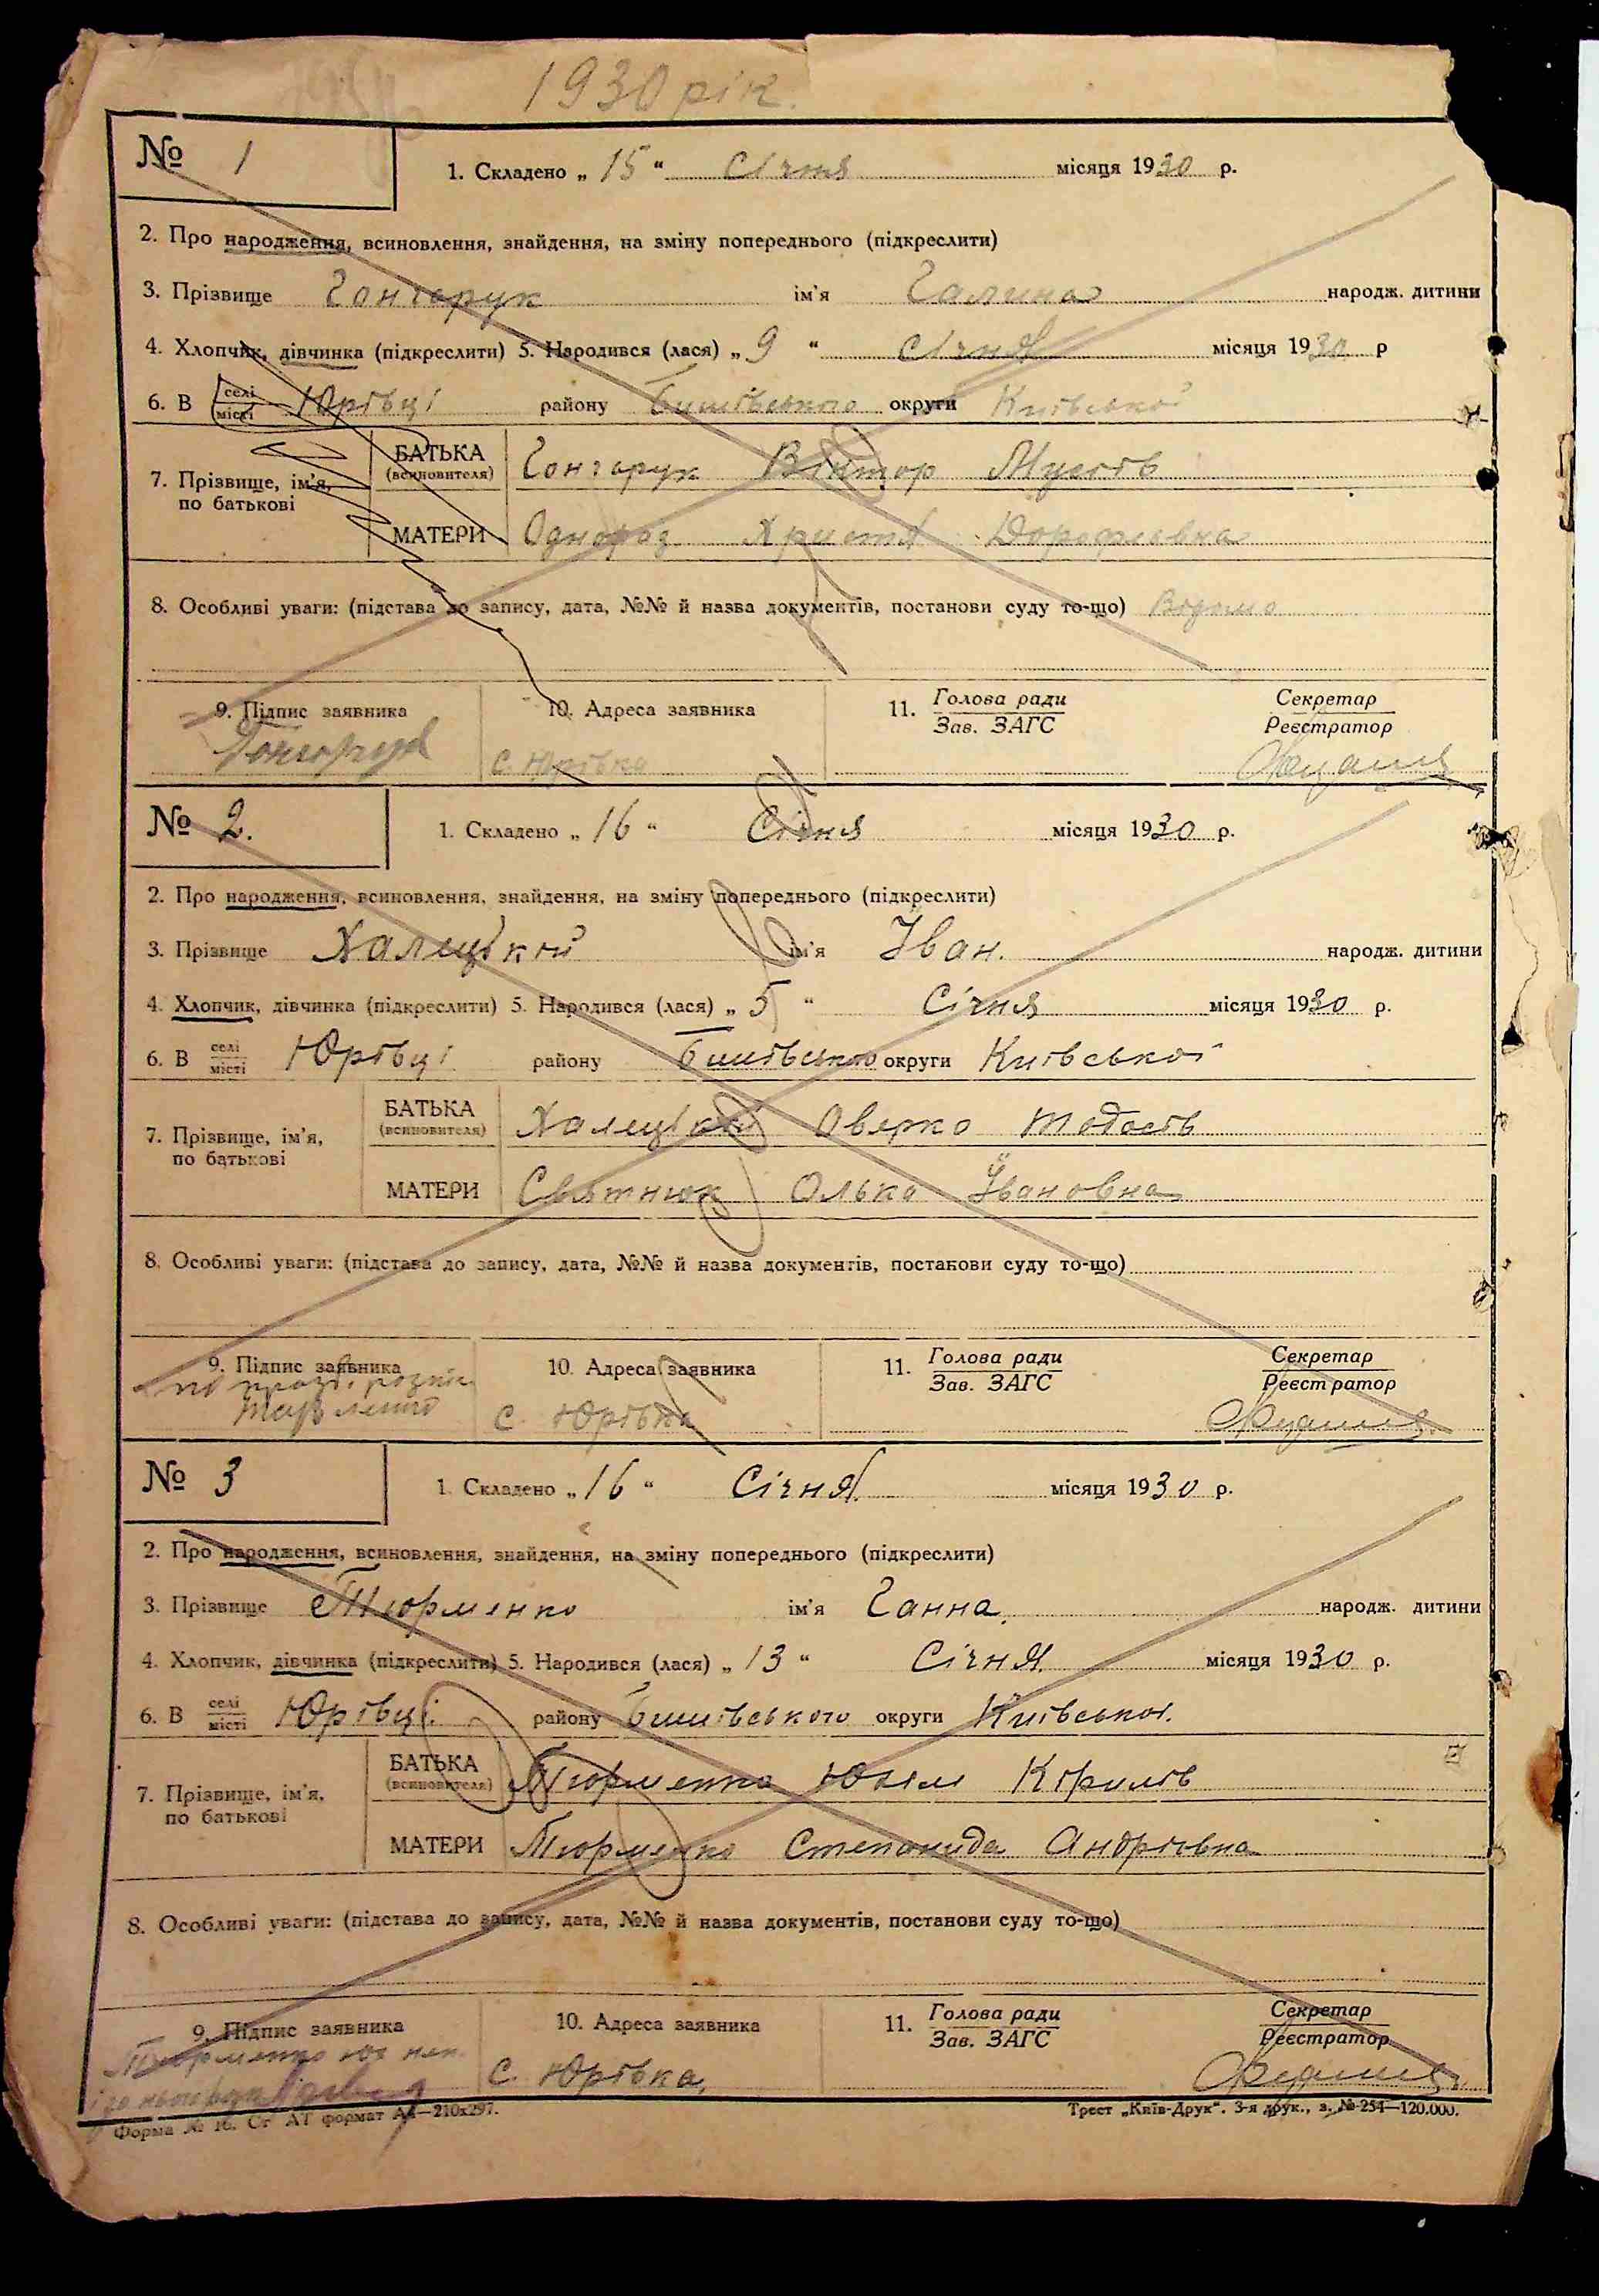 1930 рік.
№ 1
1. Складено „ 15 “ Січня місяця 1930 р.
2. Про народження, всиновлення, знайдення, на зміну попереднього (підкреслити)
3. Прізвище Гончарук ім'я Галина народж. дитини
4. Хлопчик, дівчинка (підкреслити) 5. Народився (лася) „ 9 “ Січня місяця 1930 р
6. В селі/місті Юрівці району Бишівського округи Київської
7. Прізвище, ім'я, по батькові
БАТЬКА (всиновителя) Гончарук Віктор Мусіїв
МАТЕРИ Христя Дорофіевна
8. Особливі уваги: (підстава до запису, дата, №№ й назва документів, постанови суду то-що) Відомо
9. Підпис заявника 10. Адреса заявника 11. Голова ради Секретар
Зав. ЗАГС Реєстратор
Гончарук с. Юрівка
№ 2.
1. Складено „ 16 “ Січня місяця 1930 р.
2. Про народження, всиновлення, знайдення, на зміну попереднього (підкреслити)
3. Прізвище Халецький ім'я Іван. народж. дитини
4. Хлопчик, дівчинка (підкреслити) 5. Народився (лася) „ 5 “ Січня місяця 1930 р.
6. В селі/місті Юрівці району Бишівського округи Київської
7. Прізвище, ім'я, по батькові
БАТЬКА (всиновителя) Халецький Оверко Тодосів
МАТЕРИ Святнюк Олька Івановна
8. Особливі уваги: (підстава до запису, дата, №№ й назва документів, постанови суду то-що)
9. Підпис заявника 10. Адреса заявника 11. Голова ради Секретар
Зав. ЗАГС Реєстратор
с. Юрівка
№ 3
1. Складено „ 16 “ Січня місяця 1930 р.
2. Про народження, всиновлення, знайдення, на зміну попереднього (підкреслити)
3. Прізвище Тюрменко ім'я Ганна. народж. дитини
4. Хлопчик, дівчинка (підкреслити) 5. Народився (лася) „ 13 “ Січня місяця 1930 р.
6. В селі/місті Юрівці. району Бишівського округи Київської.
7. Прізвище, ім'я, по батькові
БАТЬКА (всиновителя) Тюрменко Юхим Кірилів
МАТЕРИ Тюрменко Степанида Андріівна
8. Особливі уваги: (підстава до запису, дата, №№ й назва документів, постанови суду то-що)
9. Підпис заявника 10. Адреса заявника 11. Голова ради Секретар
Зав. ЗАГС Реєстратор
Тюрменко с. Юрівка,
Форма № 16. Ст АТ формат А4—210x297. Трест „Київ-Друк“. 3-я друк., з. № 254—120.000.